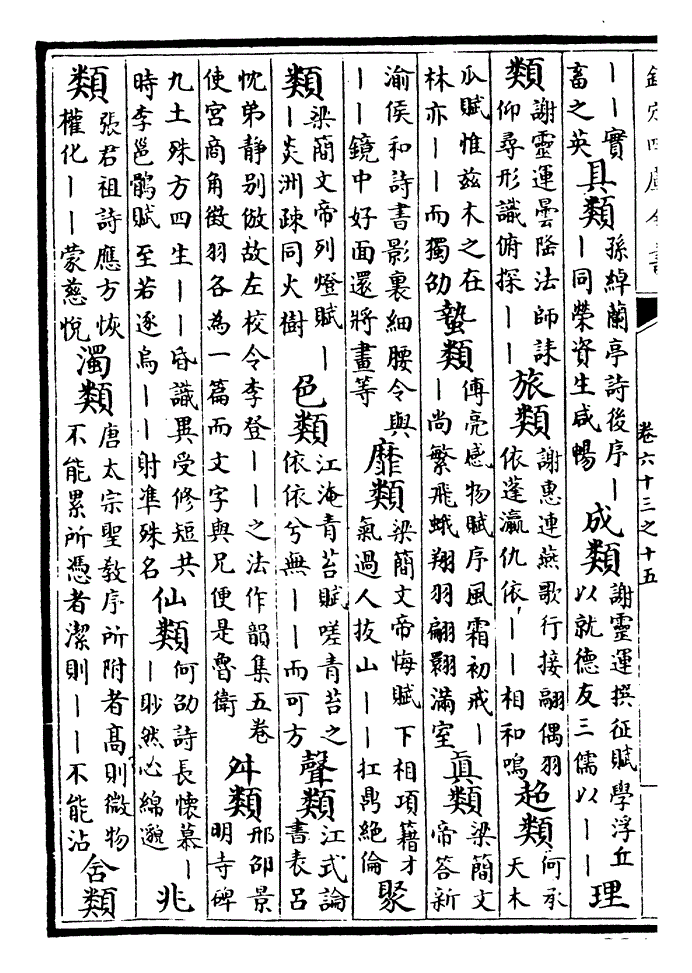 欽定四庫全書
卷六十三之十五
｜｜實畜之英具類孫綽蘭亭詩後序｜｜同榮資生咸暢成類謝靈運撰征賦學浮丘以就德友三儒以｜｜理
類謝靈運曇隆法師誄仰尋形識俯探｜｜旅類謝惠連燕歌行接翮偶羽依蓬瀛仇依｜｜相和鳴超類何承天木
瓜賦惟兹木之在林亦｜｜而獨劭蟄類傅亮感物賦序風霜初戒｜｜尚繁飛蛾翔羽翩翾滿室真類梁簡文帝答新
渝侯和詩書影裏細腰令與｜｜鏡中好面還將畫等靡類梁簡文帝悔賦下相項籍才氣過人拔山｜｜扛鼎絶倫聚
類梁簡文帝列燈賦｜｜炎洲疎同火樹色類江淹青苔賦嗟青苔之依依兮無｜｜而可方聲類江式論書表呂
忱弟静别倣故左校令李登｜｜之法作韻集五卷使宮商角徵羽各為一篇而文字與兄便是魯衛舛類邢邵景明寺碑
九土殊方四生｜｜昏識異受修短共時李邕鶻賦至若逐烏｜｜射凖殊名仙類何劭詩長懷慕｜｜眇然心綿邈兆
類張君祖詩應方恢權化｜｜蒙慈悦濁類唐太宗聖教序所附者髙則微物不能累所憑者潔則｜｜不能沾舍類